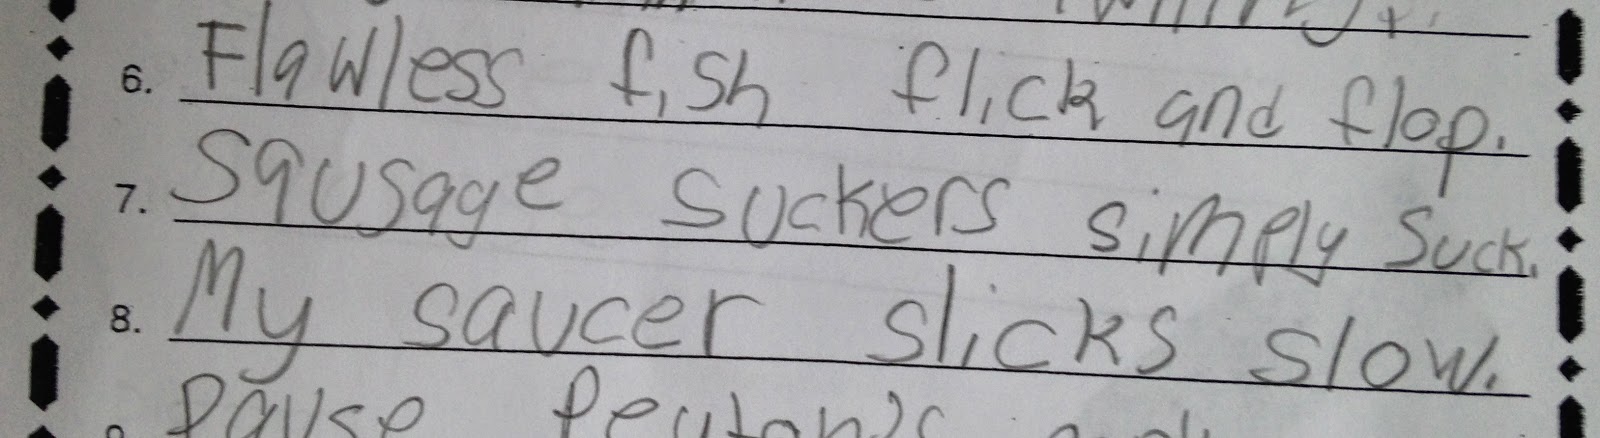 6. Flawless fish flick and flop.
7. Squsage suckers simply suck.
8. My saucer slicks slow.
Pause